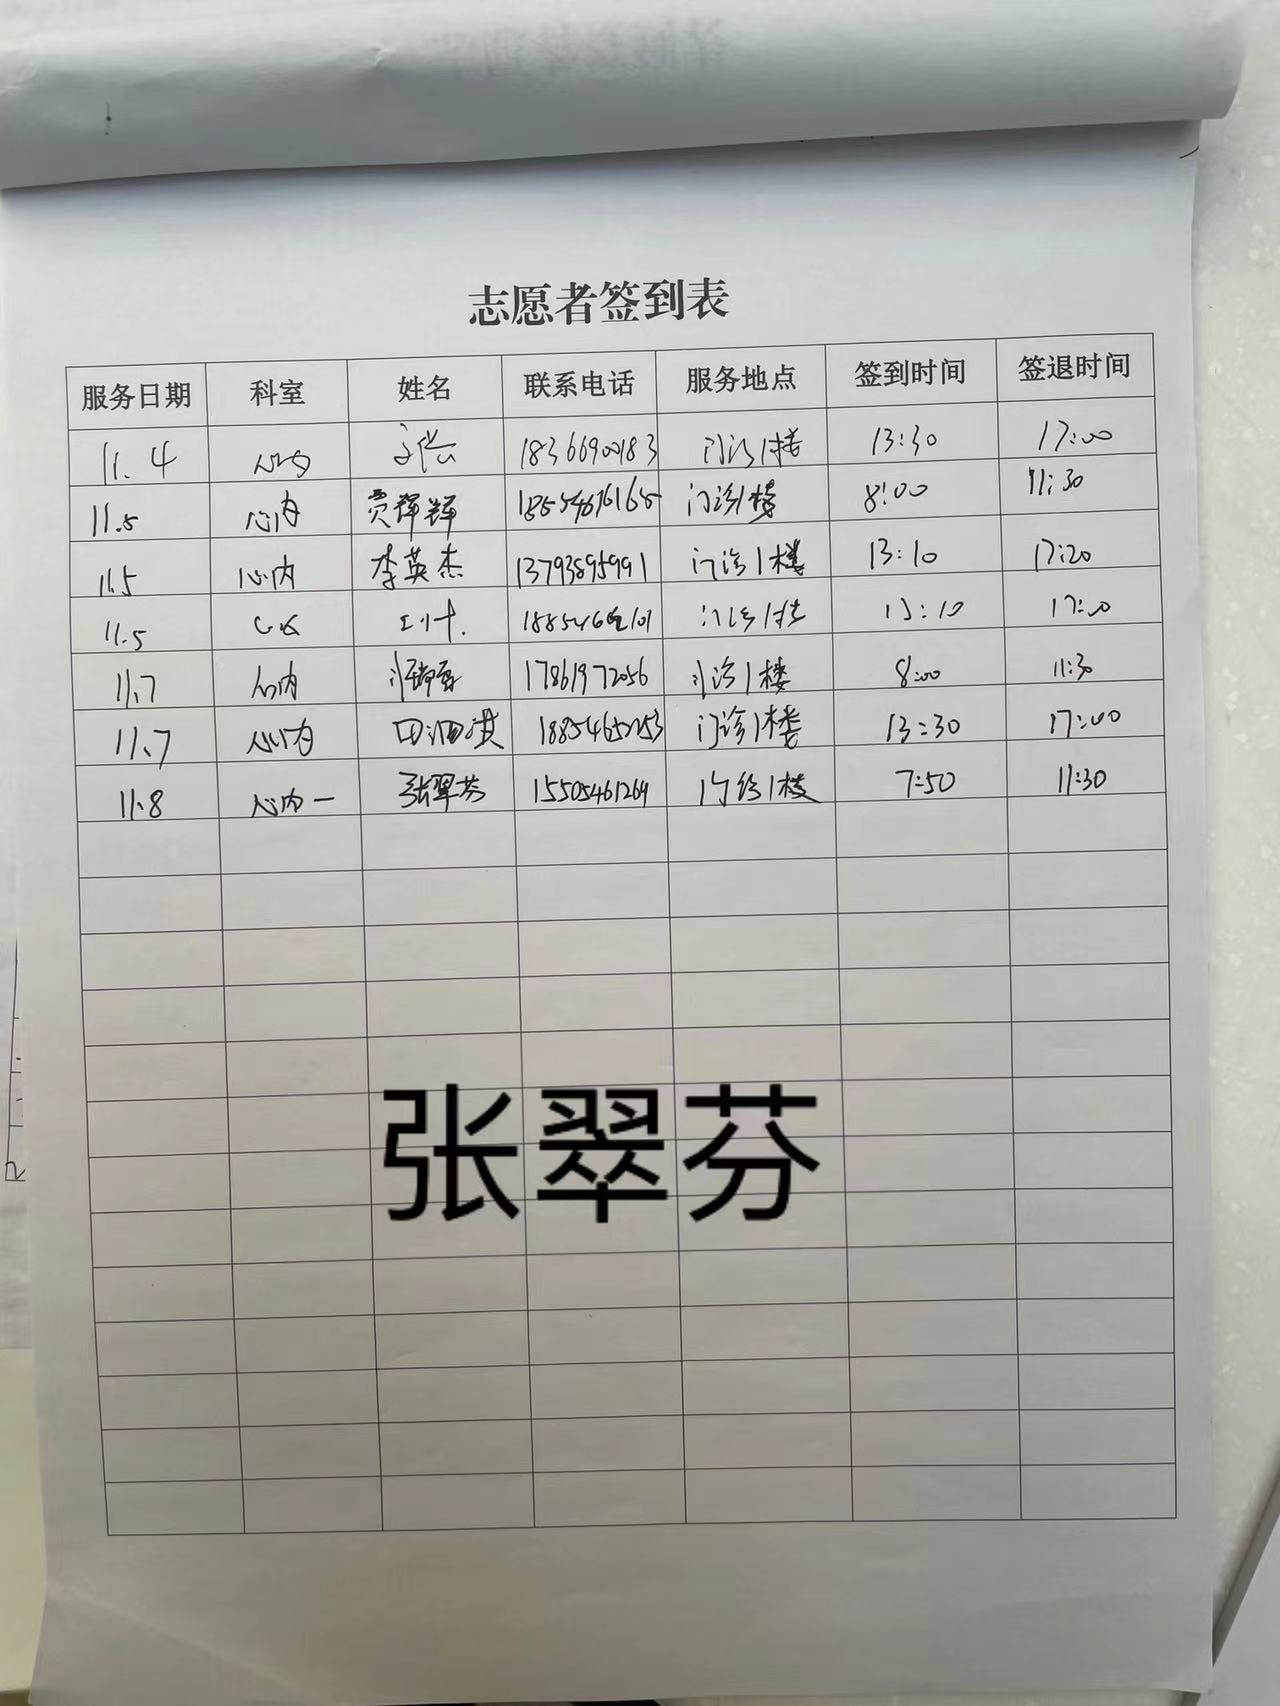 志愿者签到表
服务日期 科室 姓名 联系电话 服务地点 签到时间 签退时间
11.4 心内 18366900183 门诊1楼 13:30 17:00
11.5 心内 贾辉辉 门诊1楼 8:00 11:30
11.5 心内 李英杰 13793895991 门诊1楼 13:10 17:20
11.5 门诊1楼 17:00
11.7 心内 17861972056 门诊1楼 8:00 11:30
11.7 心内 门诊1楼 13:30 17:00
11.8 心内一 张翠芬 15505461269 门诊1楼 7:50 11:30
张翠芬